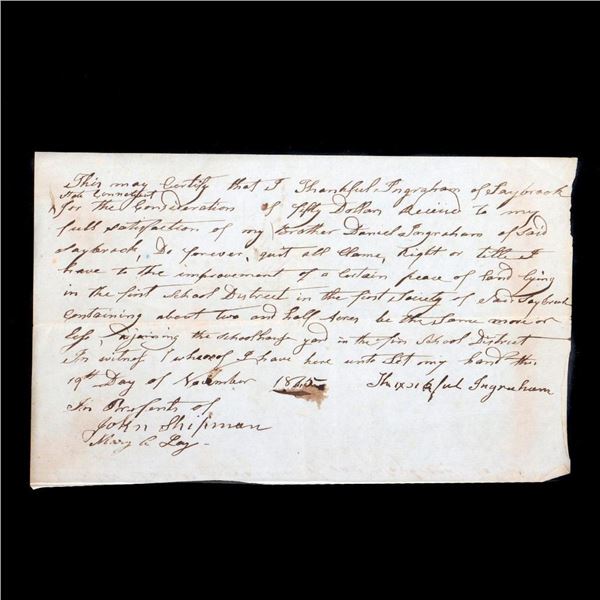 This may Certify that I Thankful Ingraham of Saybrook
State Connecticut
for the Consideration of fifty Dollars Received to my
full Satisfaction of my Brother Daniel Ingraham of Said
Saybrook, Do forever, quit all Claime, Right or title I
have to the improvement of a Certain peace of land lying
in the first School District in the first Society of Said Saybrook
Containing about two and half Acres be the Same more or
less, ajoining the schoolhouse yard in the School District
In witness whereof I have here unto Set my hand this
19th Day of November Thankful Ingraham
In Presents of
John Shipman
Mary A Lay